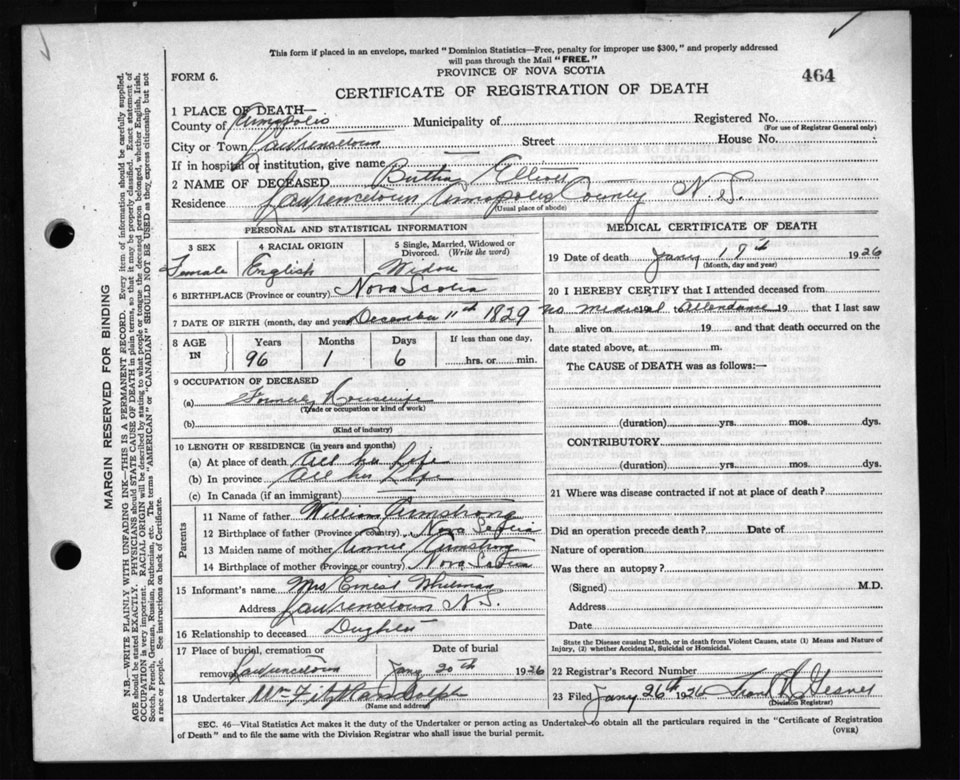 This form if placed in an envelope, marked "Dominion Statistics—Free, penalty for improper use $300," and properly addressed
will pass through the Mail "FREE."
PROVINCE OF NOVA SCOTIA
FORM 6.
464
CERTIFICATE OF REGISTRATION OF DEATH
1 PLACE OF DEATH—
County of Annapolis Municipality of Registered No.
(For use of Registrar General only)
City or Town Lawrencetown Street House No.
If in hospital or institution, give name
2 NAME OF DECEASED Bertha Elliott
Residence Lawrencetown Annapolis County N.S.
(Usual place of abode)
PERSONAL AND STATISTICAL INFORMATION
3 SEX 4 RACIAL ORIGIN 5 Single, Married, Widowed or
Divorced. (Write the word)
Female English Widow
6 BIRTHPLACE (Province or country) Nova Scotia
7 DATE OF BIRTH (month, day and year) December 11th 1829
8 AGE IN Years Months Days If less than one day,
96 1 6 hrs. or min.
9 OCCUPATION OF DECEASED
(a) Formerly Housewife
(Trade or occupation or kind of work)
(b)
(Kind of industry)
10 LENGTH OF RESIDENCE (in years and months)
(a) At place of death All her Life
(b) In province All her Life
(c) In Canada (if an immigrant)
Parents
11 Name of father William Armstrong
12 Birthplace of father (Province or country) Nova Scotia
13 Maiden name of mother Annie Armstrong
14 Birthplace of mother (Province or country) Nova Scotia
15 Informant's name Mrs Ernest Whitman
Address Lawrencetown N.S.
16 Relationship to deceased Dughter
17 Place of burial, cremation or Date of burial
removal Lawrencetown Jany 20th 1926
18 Undertaker Wm FitzRandolph
(Name and address)
MEDICAL CERTIFICATE OF DEATH
19 Date of death Jany 17th 1926
(Month, day and year)
20 I HEREBY CERTIFY that I attended deceased from
no medical 19 to attendance 19 that I last saw
h alive on 19 and that death occurred on the
date stated above, at m.
The CAUSE of DEATH was as follows:—
(duration) yrs. mos. dys.
CONTRIBUTORY
(duration) yrs. mos. dys.
21 Where was disease contracted if not at place of death?
Did an operation precede death? Date of
Nature of operation
Was there an autopsy?
(Signed) M.D.
Address
Date
State the Disease causing Death, or in death from Violent Causes, state (1) Means and Nature
of Injury, (2) whether Accidental, Suicidal or Homicidal.
22 Registrar's Record Number
23 Filed Jany 26th 1926 Gesner
(Division Registrar)
SEC. 46—Vital Statistics Act makes it the duty of the Undertaker or person acting as Undertaker to obtain all the particulars required in the "Certificate of Registration
of Death" and to file the same with the Division Registrar who shall issue the burial permit.
(OVER)
MARGIN RESERVED FOR BINDING
N.B.—WRITE PLAINLY WITH UNFADING INK—THIS IS A PERMANENT RECORD. Every item of information should be carefully supplied.
AGE should be stated EXACTLY. PHYSICIANS should STATE CAUSE OF DEATH in plain terms, so that it may be properly classified. Exact statement of
OCCUPATION is very important. RACIAL ORIGIN will be described by stating to what people or tongue the deceased person belonged, whether English, Irish,
Scotch, French, German, Russian, Ruthenian, etc. The terms "AMERICAN" or "CANADIAN" SHOULD NOT BE USED as they express citizenship but not
a race or people. See instructions on back of Certificate.